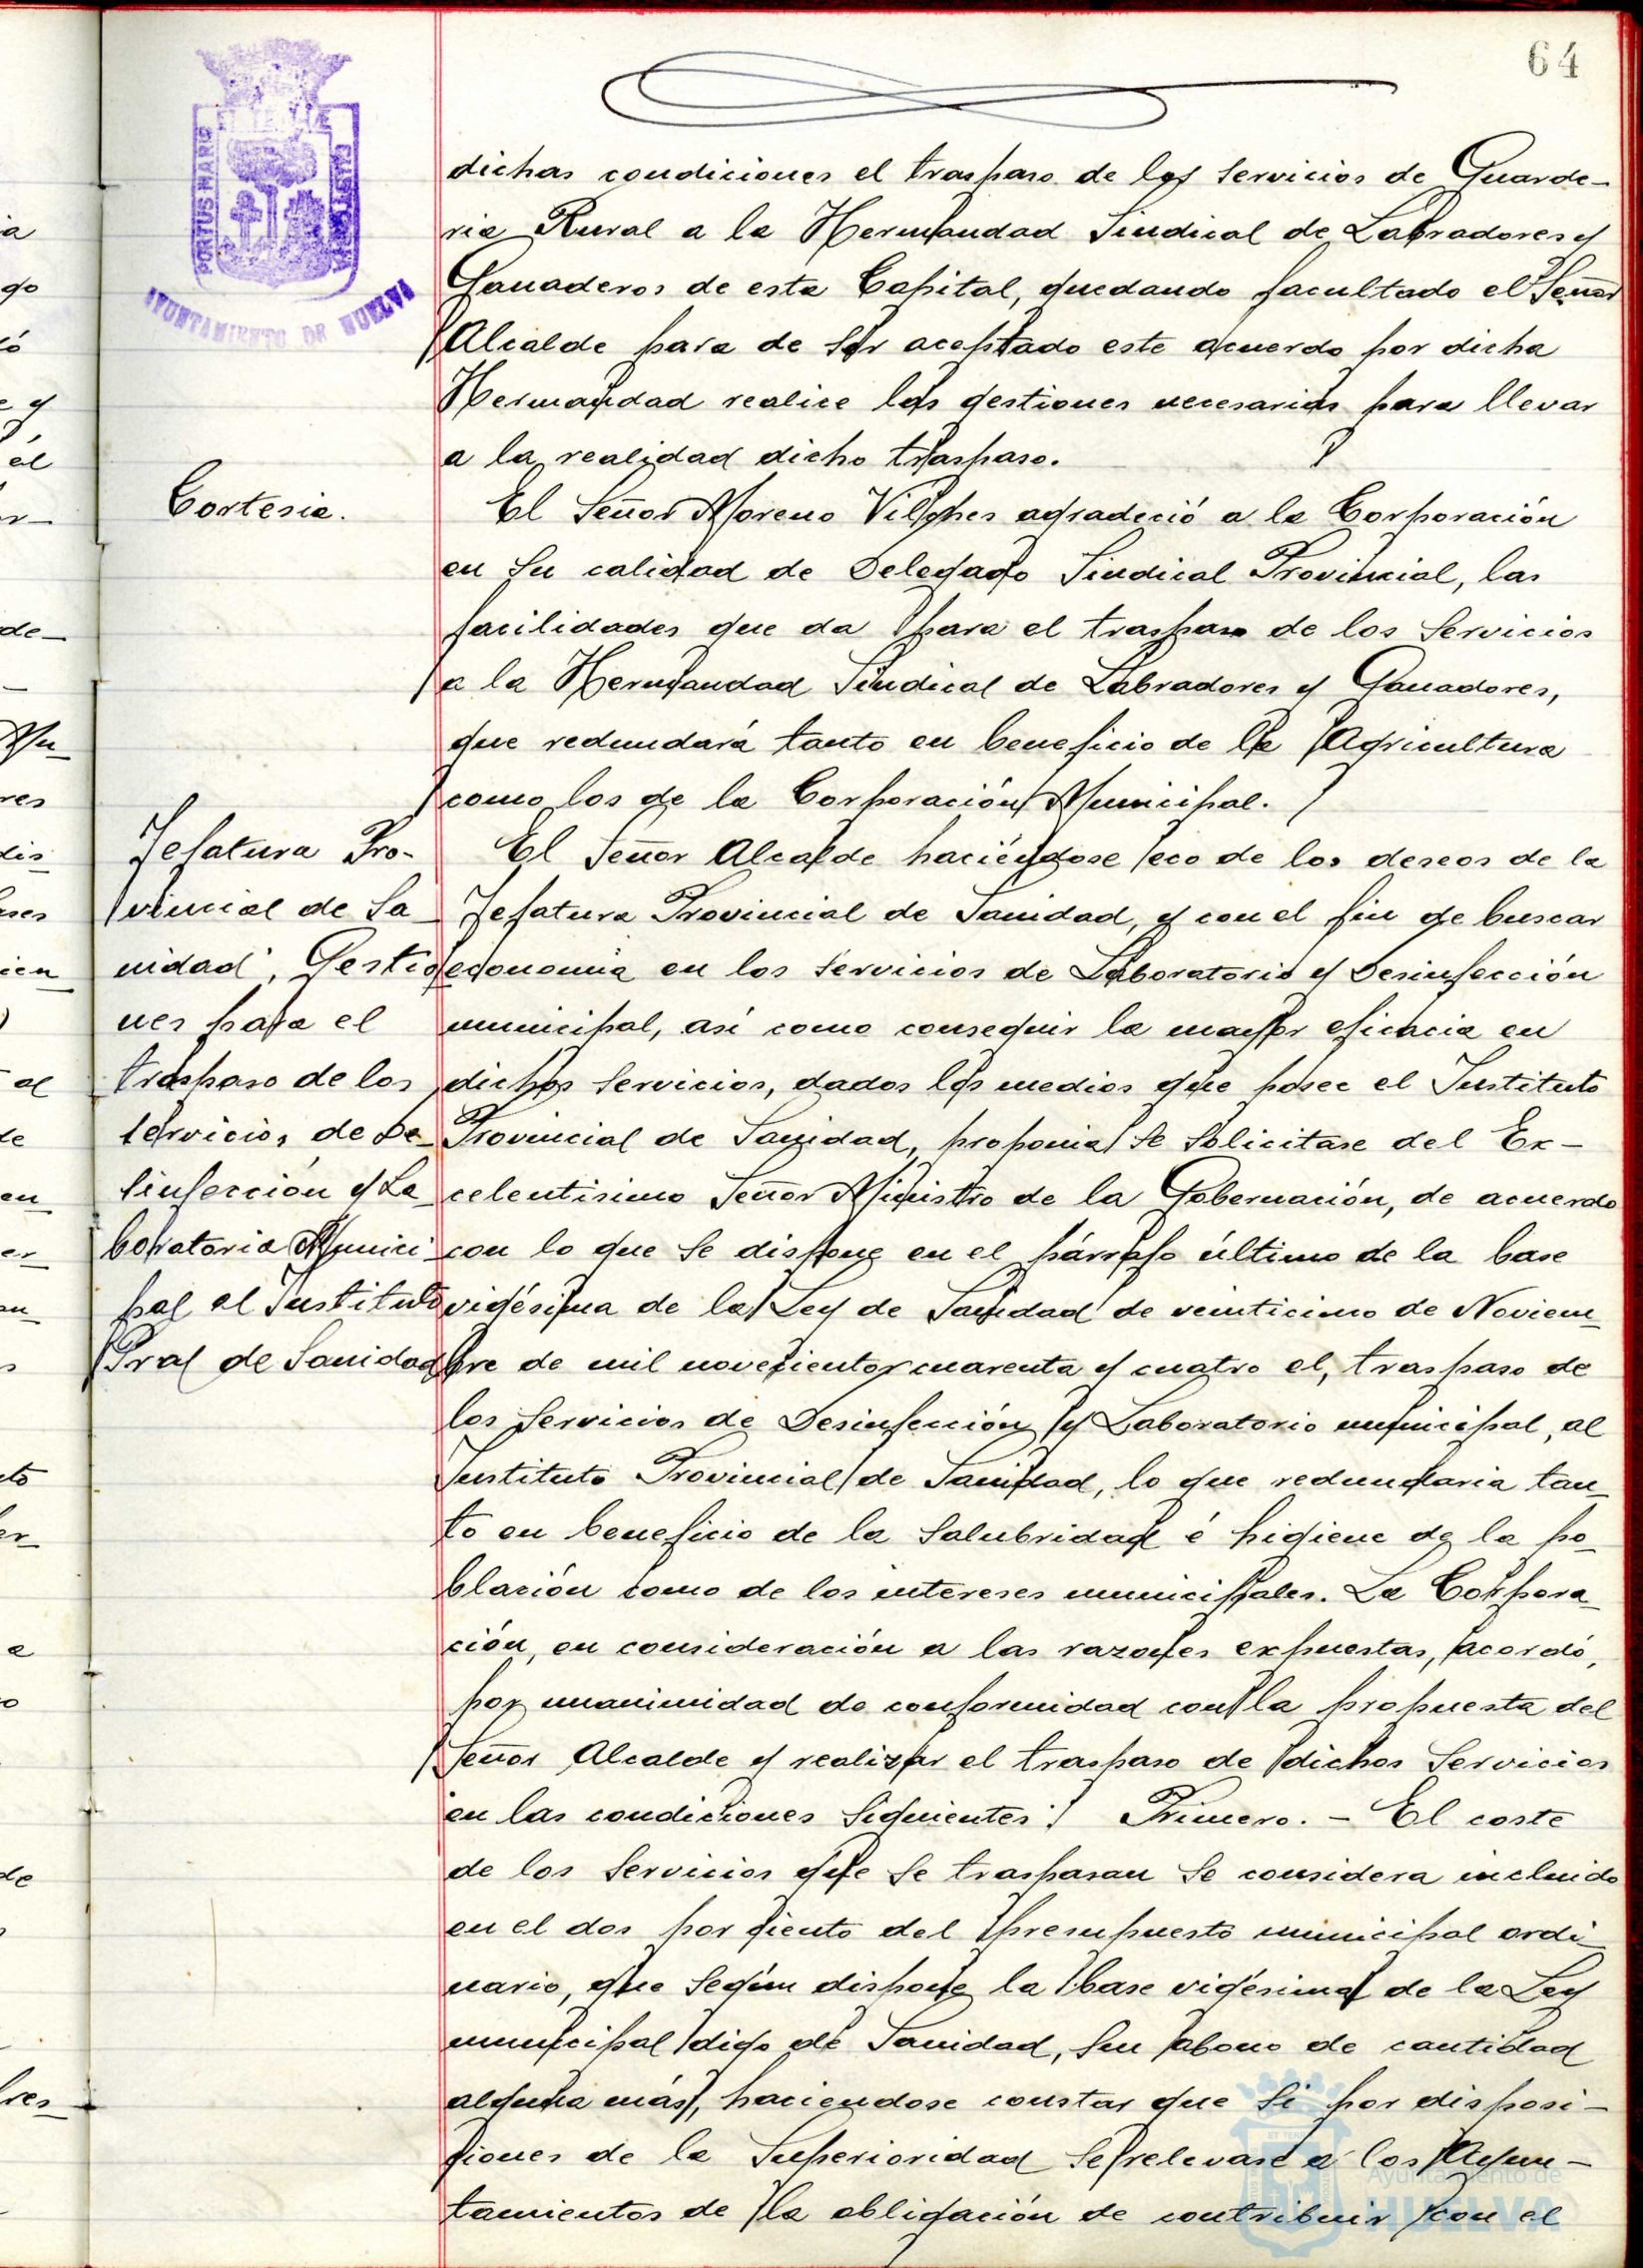 64
PORTUS MARIS
ET TERRAE
CUSTODIA
AYUNTAMIENTO DE HUELVA
dichas condiciones el traspaso de los Servicios de Guarde-
ria Rural a la Hermandad Sindical de Labradores y
Ganaderos de esta Capital, quedando facultado el Señor
Alcalde para de ser aceptado este acuerdo por dicha
Hermandad realice las gestiones necesarias para llevar
a la realidad dicho traspaso.
Cortesia.
El Señor Moreno Vilches agradeció a la Corporación
en su calidad de Delegado Sindical Provincial, las
facilidades que da para el traspaso de los Servicios
a la Hermandad Sindical de Labradores y Ganadores,
que redundará tanto en beneficio de la Agricultura
como los de la Corporación Municipal.
Jefatura Pro-
vincial de Sa-
nidad, Gestio
nes para el
traspaso de los
servicios de De-
sinfección y La-
boratorio Munici-
pal al Instituto
Pral de Sanidad
El Señor Alcalde haciéndose eco de los deseos de la
Jefatura Provincial de Sanidad, y con el fin de buscar
economia en los Servicios de Laboratorio y Desinfección
municipal, asi como conseguir la mayor eficacia en
dichos Servicios, dados los medios que posee el Instituto
Provincial de Sanidad, proponia se solicitase del Ex-
celentisimo Señor Ministro de la Gobernación, de acuerdo
con lo que se dispone en el párrafo último de la base
vigésima de la Ley de Sanidad de veinticinco de Noviem-
bre de mil novecientos cuarenta y cuatro el, traspaso de
los Servicios de Desinfección y Laboratorio municipal, al
Instituto Provincial de Sanidad, lo que redundaria tan-
to en beneficio de la Salubridad é higiene de la po-
blación como de los intereses municipales. La Corpora-
ción, en consideración a las razones expuestas, acordó,
por unanimidad de conformidad con la propuesta del
Señor Alcalde y realizar el traspaso de dichos Servicios
en las condiciones Siguientes: Primero. - El coste
de los Servicios que se traspasan se considera incluido
en el dos por ciento del presupuesto municipal ordi-
nario, que según dispone la base vigésima de la Ley
municipal digo de Sanidad, sin abono de cantidad
alguna más, haciendose constar que si por disposi-
ciones de la Superioridad se relevase a los Ayun-
tamientos de la obligación de contribuir con el
Ayuntamiento de
HUELVA